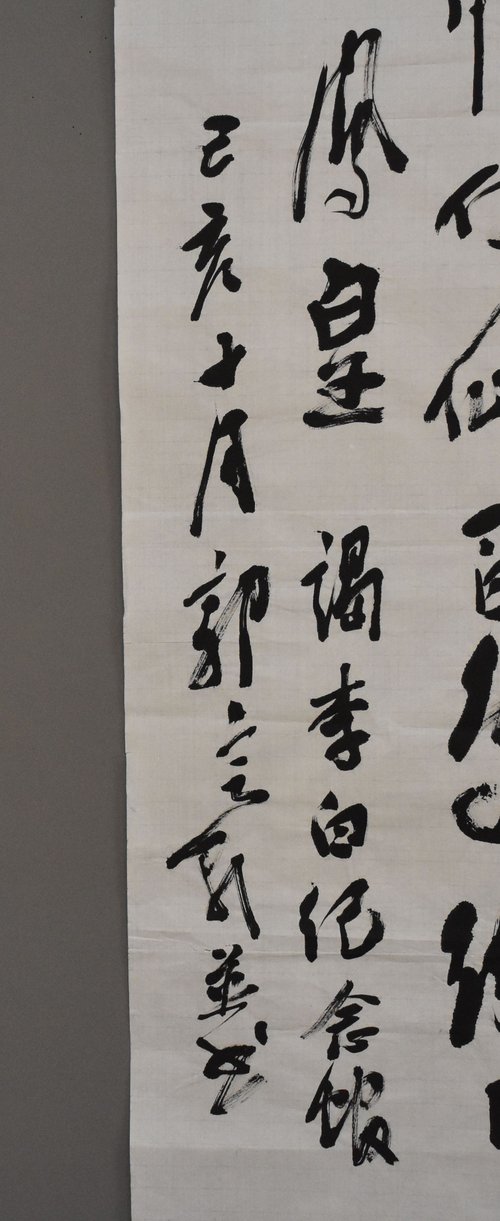 鳳皇 謁李白紀念館
己亥十月郭定乾並書